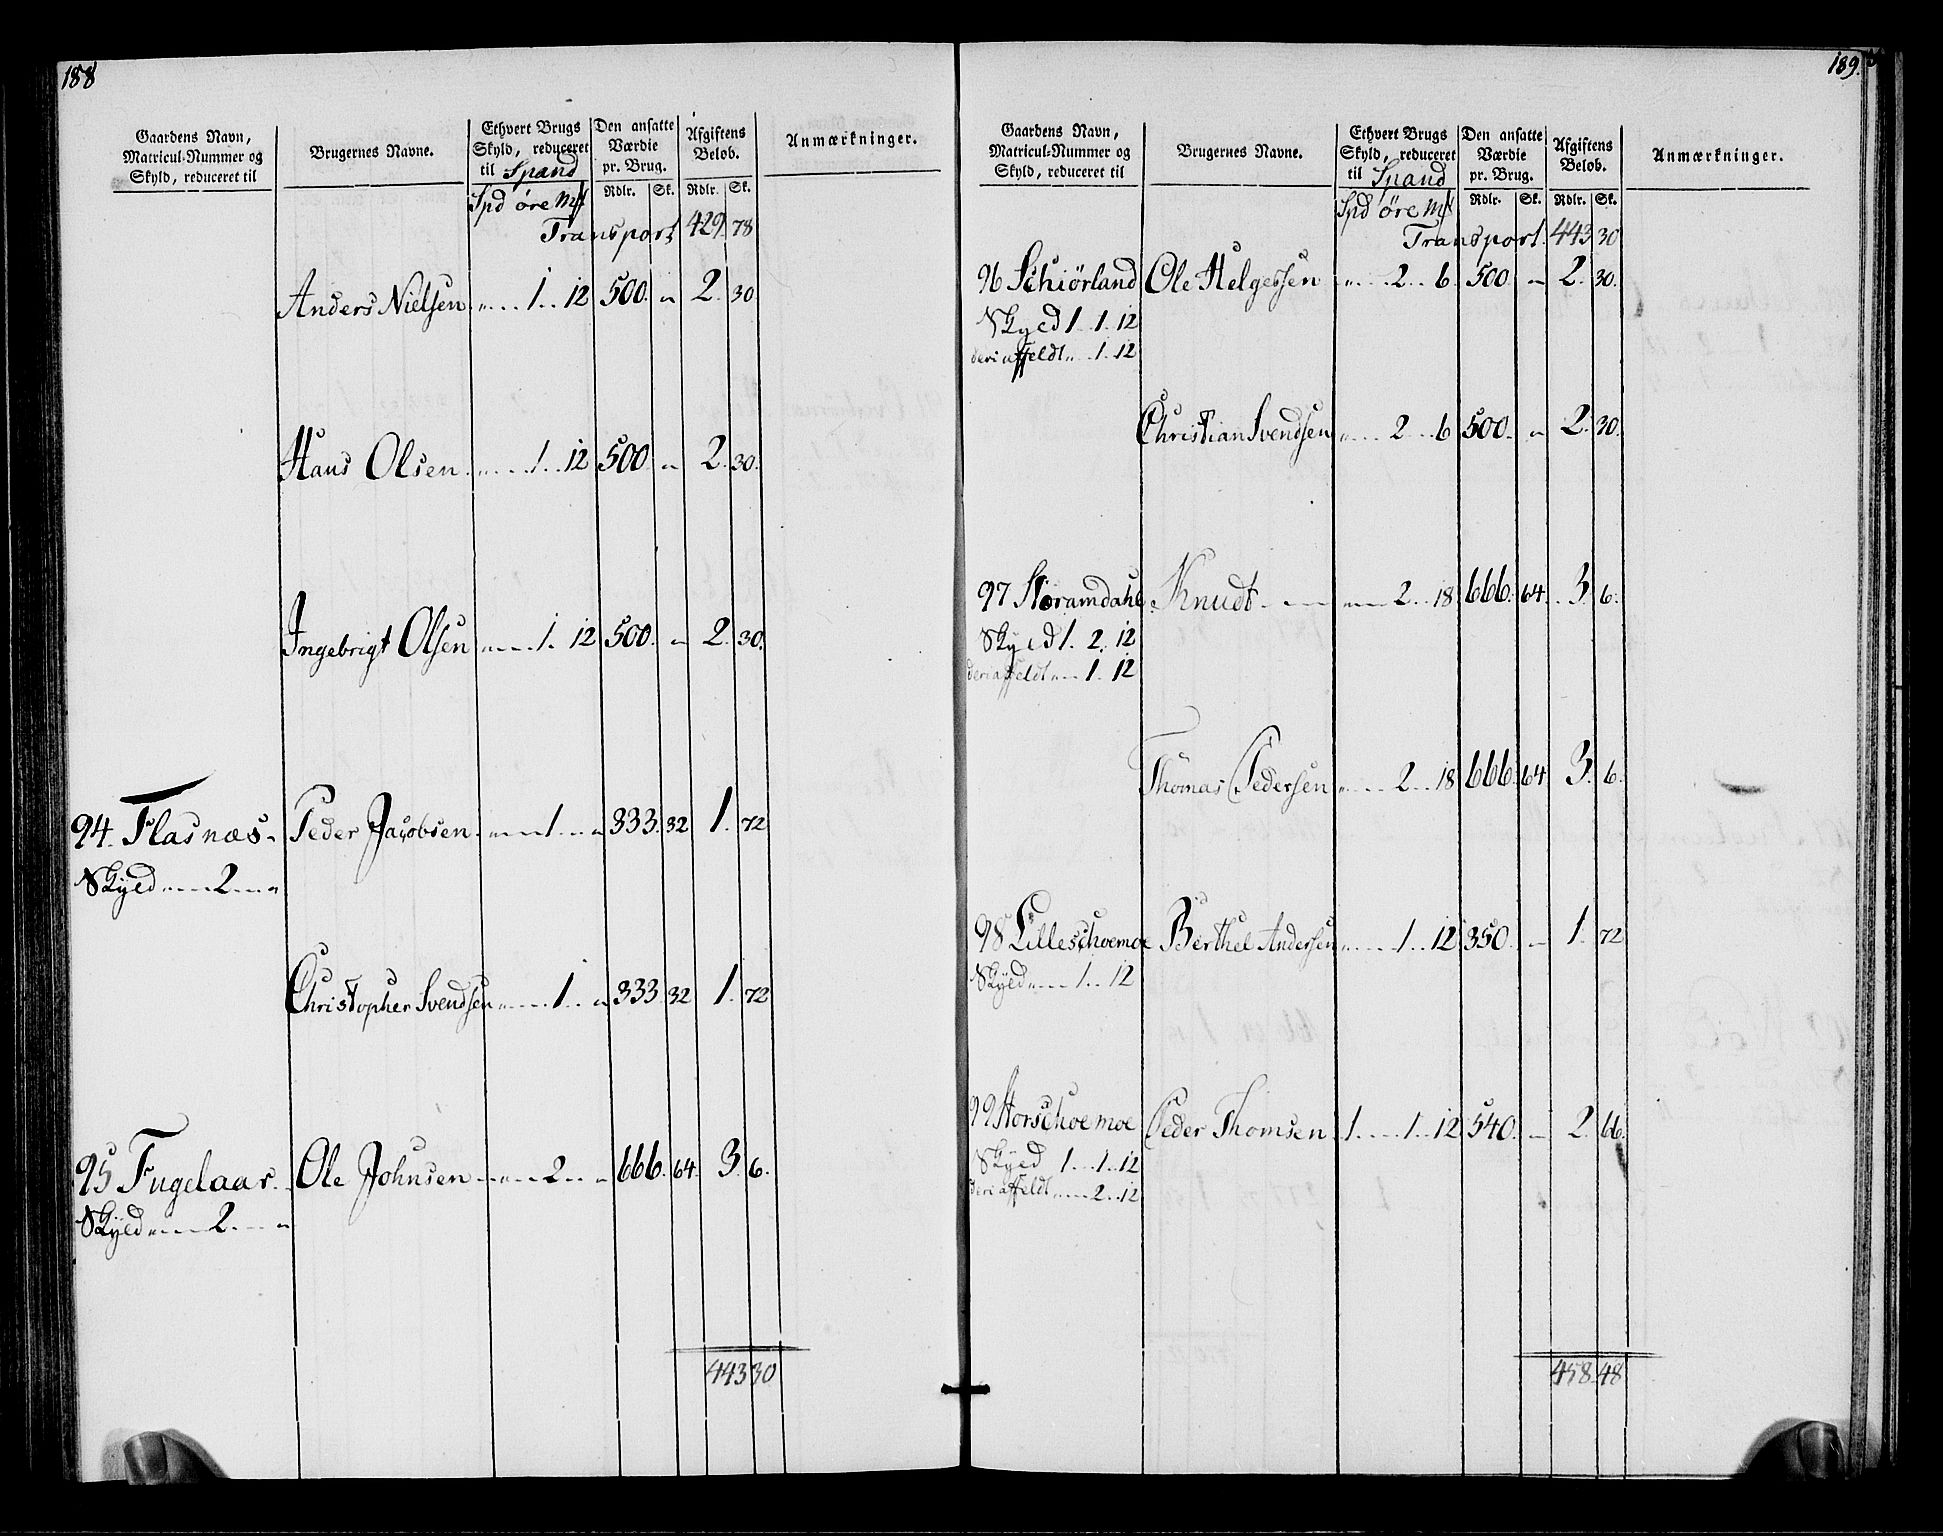 188
Gaardens Navn, Matricul-Nummer og Skyld, reduceret til
Brugernes Navne.
Ethvert Brugs Skyld, reduceret til Spand
Den ansatte Værdie pr. Brug.
Afgiftens Beløb.
Anmærkninger.
Spd øre Mk Rdlr. Sk. Rdlr. Sk.
Transport 429. 78
Anders Nielsen " 1 12 500 " 2. 30
Hans Olsen " 1 12 500 " 2. 30.
Ingebrigt Olsen " 1. 12 500 " 2. 30.
94. Flasnæs Peder Jacobsen " 1 " 333 32 1. 72
Skyld " 2 "
Christopher Svendsen " 1 " 333 32 1. 72
95 Fugelaar Ole Johnsen " 2 " 666. 64. 3. 6.
Skyld " 2 "
443 30
189.
Gaardens Navn, Matricul-Nummer og Skyld, reduceret til
Brugernes Navne.
Ethvert Brugs Skyld, reduceret til Spand
Den ansatte Værdie pr. Brug.
Afgiftens Beløb.
Anmærkninger.
Spd øre Mk Rdlr. Sk. Rdlr. Sk.
Transport. 443 30
96 Schiörland Ole Helgessen " 2 6 500 " 2. 30.
Skyld 1 1. 12
deri affeldt " 1. 12
Christian Svendsen " 2 6 500. " 2. 30.
97 Storamdahl Knudt " 2 18 666. 64. 3. 6.
Skyld 1. 2. 12
deri affeldt " 1. 12
Thomas Pedersen " 2 18 666 64 3. 6.
98 Lilleschoemoe Berthel Andersen " 1 12 350 " 1. 72
Skyld " 1 12
99 Storschoemoe Peder Thomsen 1 1 12 540. " 2. 66.
Skyld 1 1 12
deri affeldt " 2 12
458 48